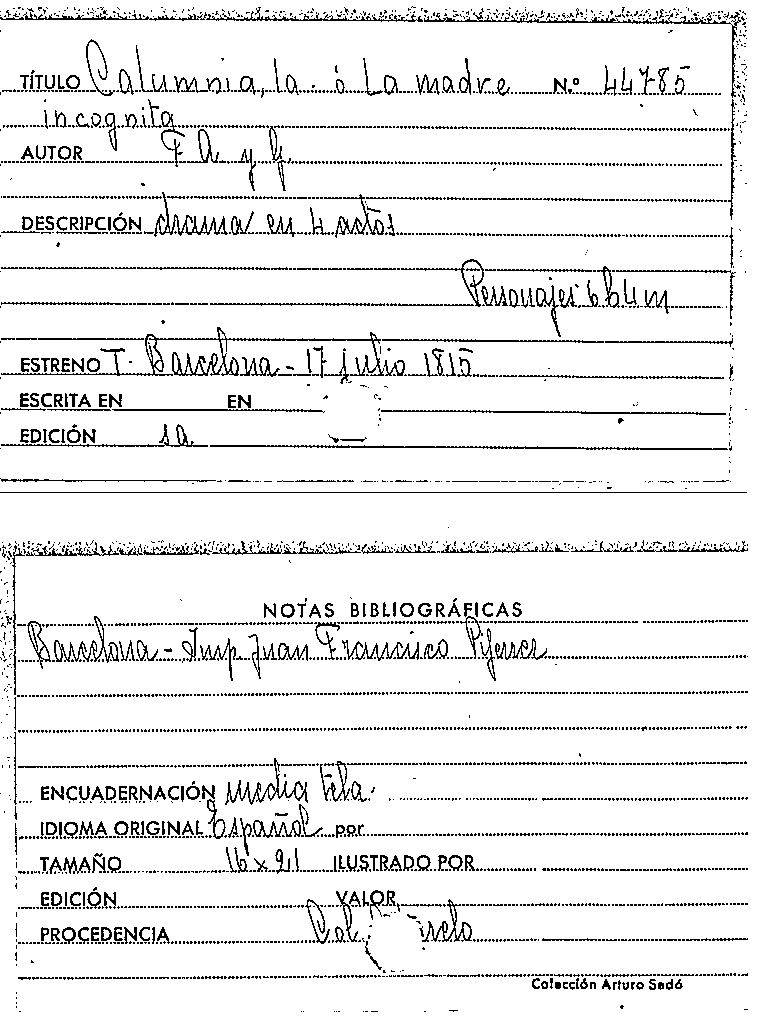 TÍTULO Calumnia, la. ó La madre N.º 44785
incognita
AUTOR F A. y G.
DESCRIPCIÓN drama en 4 actos
Personajes 6 h 4 m
ESTRENO T. Barcelona - 17 julio 1815
ESCRITA EN EN
EDICIÓN s.a.
NOTAS BIBLIOGRÁFICAS
Barcelona - Imp Juan Francisco Piferrer
ENCUADERNACIÓN media tela.
IDIOMA ORIGINAL Español por
TAMAÑO 16 x 21 ILUSTRADO POR
EDICIÓN VALOR
PROCEDENCIA Col.
Colección Arturo Sedó